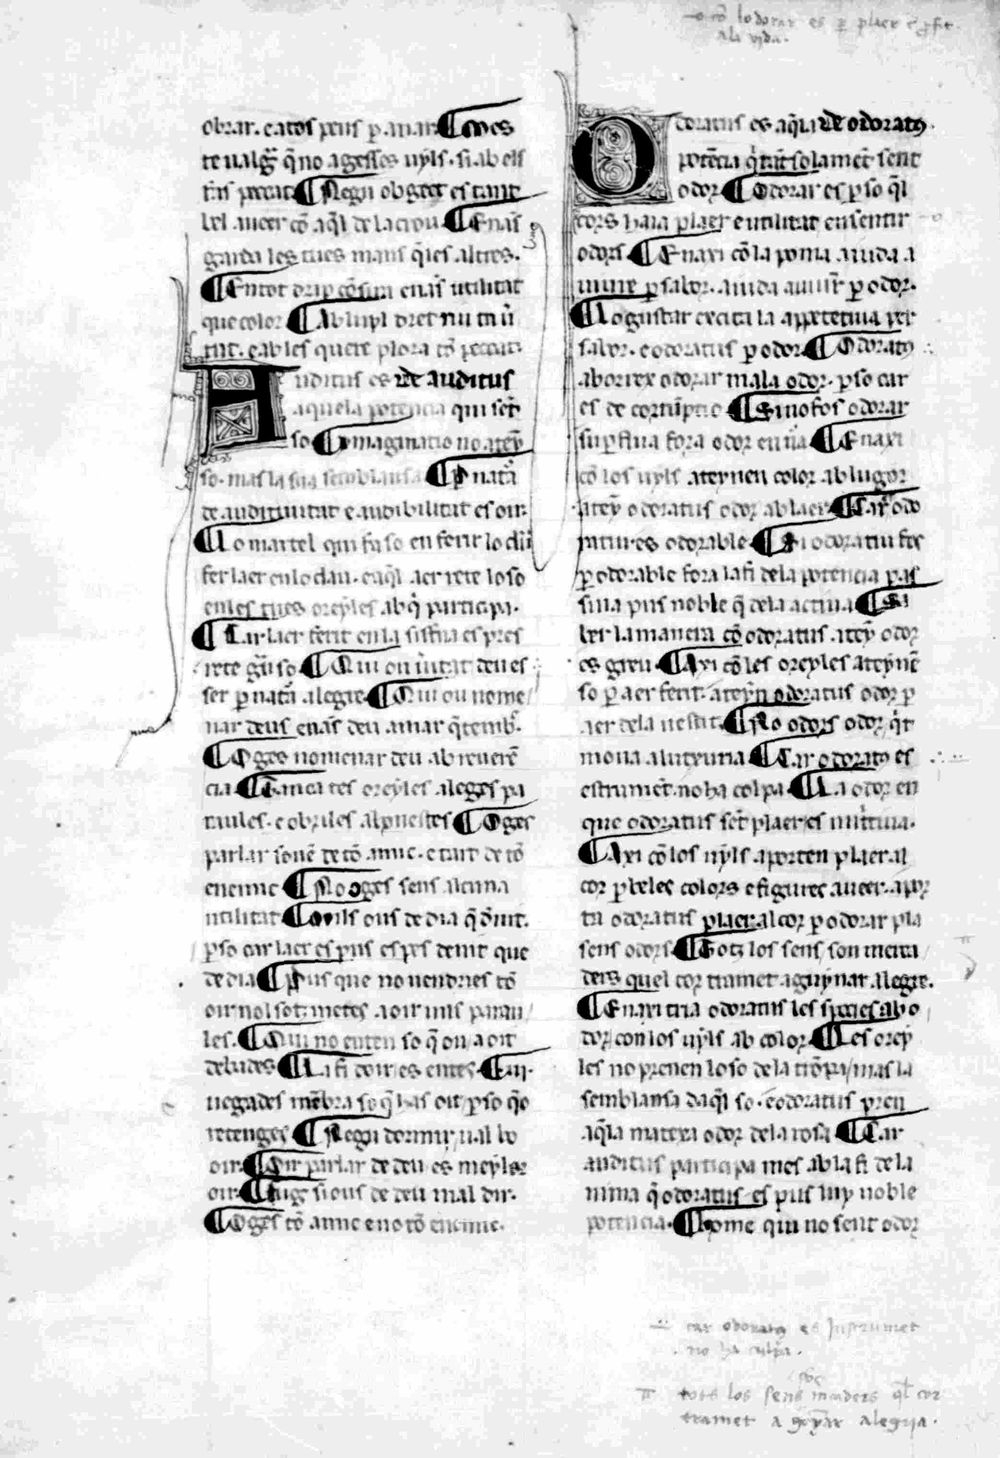 co lodorar es p plaer e
ala vida.
obrar. e atos peus p anar. ¶ Mes
te valgra q̃ no agesses uyls. si ab els
fas peccat ¶ Negu obget es tant
bel. aueer cõ aq̃l de la crou ¶ Enãs
garda les tues mans q̃ les altres.
¶ En tot drap cõsira enãs utilitat
que color ¶ Ab .i. uyl dret mira uir
tut. e ab lesquerre plora tõ peccat.
Auditus es de auditus
aquela potencia qui sẽt
so ¶ Ymaginatio no ateny
so. mas la sua semblansa ¶ P natã
de audituitat e audibilitat es oir.
¶ Lo martel qui fa so en ferir lo clau
fer laer en lo clau. e aq̃l aer rete lo so
en les tues oreyles ab q̃ participa.
¶ Car laer ferit en la sistĩa es pres
rete gran so ¶ Qui ou ueritat deu es
ser p natã alegre ¶ Qui ou nome
nar deus enãs deu amar q̃ tembr̃.
¶ Oges nomenar deu ab reuerẽ
cia ¶ Tanca tes oreyles a leges pa
raules. e obri les al pnestes ¶ Oges
parlar souẽ de tõ amic. e tart de tõ
enemic ¶ No oges sens alcuna
utilitat ¶ Mils ous de dia q̃ de nit.
pso car laer es pus espes de nit que
de dia ¶ Pus que no uendries tõ
oir no l sotzmetes a oir uils parau
les. ¶ Qui no enten so q̃ ou, a oit
debades ¶ La fi doir, es entẽs. ¶ Cui
uegades mẽbra so q̃ has oit, pso q̃ o
retenges ¶ Negu dormir, ual lo
oir. ¶ Oir parlar de deu es meyler
oir. ¶ Fuig si ous de deu mal dir.
¶ Oges tõ amic e no tõ enemic.
Odoratus es aq̃la de odoratus.
potẽcia q̃ tãt solamẽt sent
odor ¶ Odorar es pso q̃l
cors haia plaer e utilitat en sentir
odors ¶ Enaxi cõ la poma aiuda a
uiure p sabor. aiuda a uiur̃ p odor.
¶ Lo gustar excita la appetetiua per
sabor. e odoratus p odor ¶ Odoratus
aborrex odorar mala odor. pso car
es de corrũptio ¶ Si no fos odorar
supflua fora odor en uã ¶ Enaxi
cõ los uyls ateynen color ab lugor
ateny odoratus odor ab laer ¶ Car odo
ratiu es odorable ¶ Si odoratiu fos
p odorable fora la fi de la potencia pas
siua pus noble q̃ de la actiua ¶ Sa
ber la manera cõ odoratus ateny odor
es greu ¶ Axi cõ les oreyles ateynẽ
so p aer ferit. ateyn odoratus odor p
aer de la uestit ¶ No odors odor q̃t
moua a luxuria ¶ Car odoratus es
estrumẽt. no ha colpa ¶ La odor en
que odoratus sẽt plaer, es mitiua.
¶ Axi cõ los uyls aporten plaer al
cor p beles colors e figures aueer. apor
ta odoratus plaer al cor p odorar pla
sens odors ¶ Totz los sens, son incita
ders quel cor tramet a guaynar alegre.
¶ Enaxi tria odoratus les species ab o
dor, con los uyls ab color ¶ Les orey
les no prenen lo so de la trõpa, mas la
semblansa daq̃l so. e odoratus pren
aq̃la matexa odor de la rosa ¶ Car
auditus participa mes ab la fi de la
nima q̃ odoratus es pus luy noble
potencia. ¶ Home qui no sent odor
car odoratus es Instrumet
no ha culpa.
tots los sens incitaders ql cor
tramet a goyar alegria.